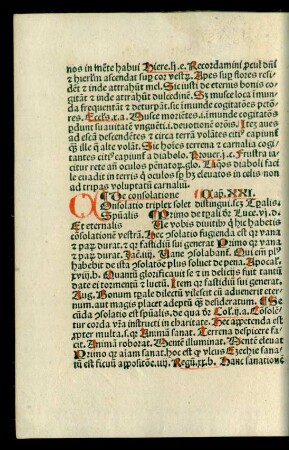 nos in mēte habui Hiere.lj.c. Recordamini ꝓcul dn̄i
⁊ hierlm̄ ascendat suꝑ cor vestꝝ. Apes suꝑ flores resi-
dēt ⁊ inde attrahūt mel. Sic iusti de eternis bonis co-
gitāt ⁊ inde attrahūt dulcedinē. Sꝫ musce loca imun-
da frequentāt ⁊ deturpāt. sic imunde cogitatōes pctōres.
Eccl's.x.a. Musce moriētes.i.imunde cogitatōes
ꝑdunt suauitatē vnguēti.i.deuotionē cordis. Itēꝫ aues
ad escā descendētes ⁊ circa terrā volātes citꝰ capiunt̄
qꝫ ille q̄ alte volāt. Sic hoīes terrena ⁊ carnalia cogi-
tantes citiꝰ capiunt̄ a diabolo. Prouer.j.c. Frustra ia-
citur rete añ oculos pēnatoꝝ glo. Laq̄os diaboli faci-
le euadit in terris q̄ oculos sꝑ hꝫ eleuatos in celis non
ad tripas voluptatū carnaliū.
¶ De consolatione Cap̄. XXI.
COnsolatio triplex solet distingui.scꝫ Tꝑalis.
Spūalis Primo de tꝑali dr̄ Luce.vj.d.
Et eternalis Ve vobis diuitibꝰ q̄ hic habetis
cōsolationē vestrā. Hec ꝯsolatio fugienda est qꝛ vana
⁊ qꝛ parꝝ durat. ⁊ qꝛ fastidiū sui generat Primo qꝛ vana
⁊ qꝛ parꝝ durat. Zach.x. Vane ꝯsolabant̄. Qui em̄ plꝰ
habebit de ista ꝯsolatōe plꝰ soluet de pena. Apocal.
xviij.b. Quantū glorificauit se ⁊ in delicijs fuit tantū
date ei tormentū ⁊ luctū. Itēm qꝛ fastidiū sui generat.
Aug. Bonum tꝑale dilectū vilescit cū aduenerit eter-
num. aut magis placet adeptū qꝫ desideratum. ¶ Se-
cūda ꝯsolatio est spūalis. de qua dr̄ Col'.ij.a. Cōsolē-
tur corda vr̄a instructi in charitate. Hec appetenda est
ꝓpter multa.s.qꝛ Animā sanat. Terrena despicere fa-
cit. Animā roborat. Mentē illuminat. Mentē eleuat
Primo qꝛ aīam sanat. hoc est qꝫ vlcus Ezechie sana-
tū est ficuū appositōe.iiij. Regū.xx.b. Hanc sanationē